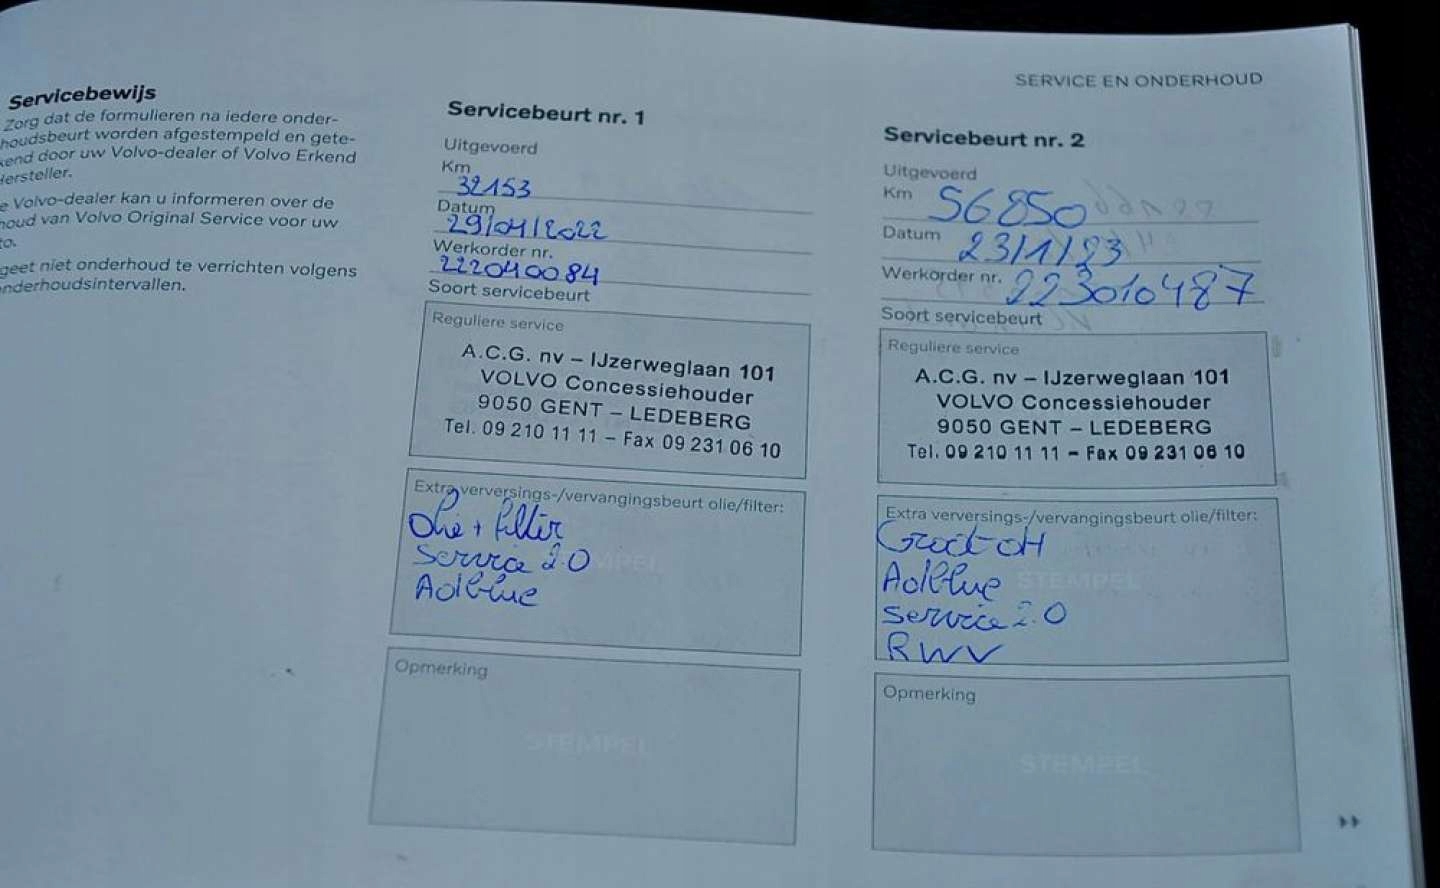 SERVICE EN ONDERHOUD
Servicebewijs
Zorg dat de formulieren na iedere onder-
houdsbeurt worden afgestempeld en gete-
kend door uw Volvo-dealer of Volvo Erkend
Hersteller.
e Volvo-dealer kan u informeren over de
houd van Volvo Original Service voor uw
to.
geet niet onderhoud te verrichten volgens
nderhoudsintervallen.
Servicebeurt nr. 1
Uitgevoerd
Km
32153
Datum
29/04/2022
Werkorder nr.
222040084
Soort servicebeurt
Reguliere service
A.C.G. nv – IJzerweglaan 101
VOLVO Concessiehouder
9050 GENT – LEDEBERG
Tel. 09 210 11 11 – Fax 09 231 06 10
Extra verversings-/vervangingsbeurt olie/filter:
Olie + filter
Service 2.0
Adblue
Opmerking
STEMPEL
Servicebeurt nr. 2
Uitgevoerd
Km 56850
Datum 23/1/23
Werkorder nr. 223010487
Soort servicebeurt
Reguliere service
A.C.G. nv – IJzerweglaan 101
VOLVO Concessiehouder
9050 GENT – LEDEBERG
Tel. 09 210 11 11 – Fax 09 231 06 10
Extra verversings-/vervangingsbeurt olie/filter:
Groot OH
Adblue
STEMPEL
Service 2.0
RWV
Opmerking
STEMPEL